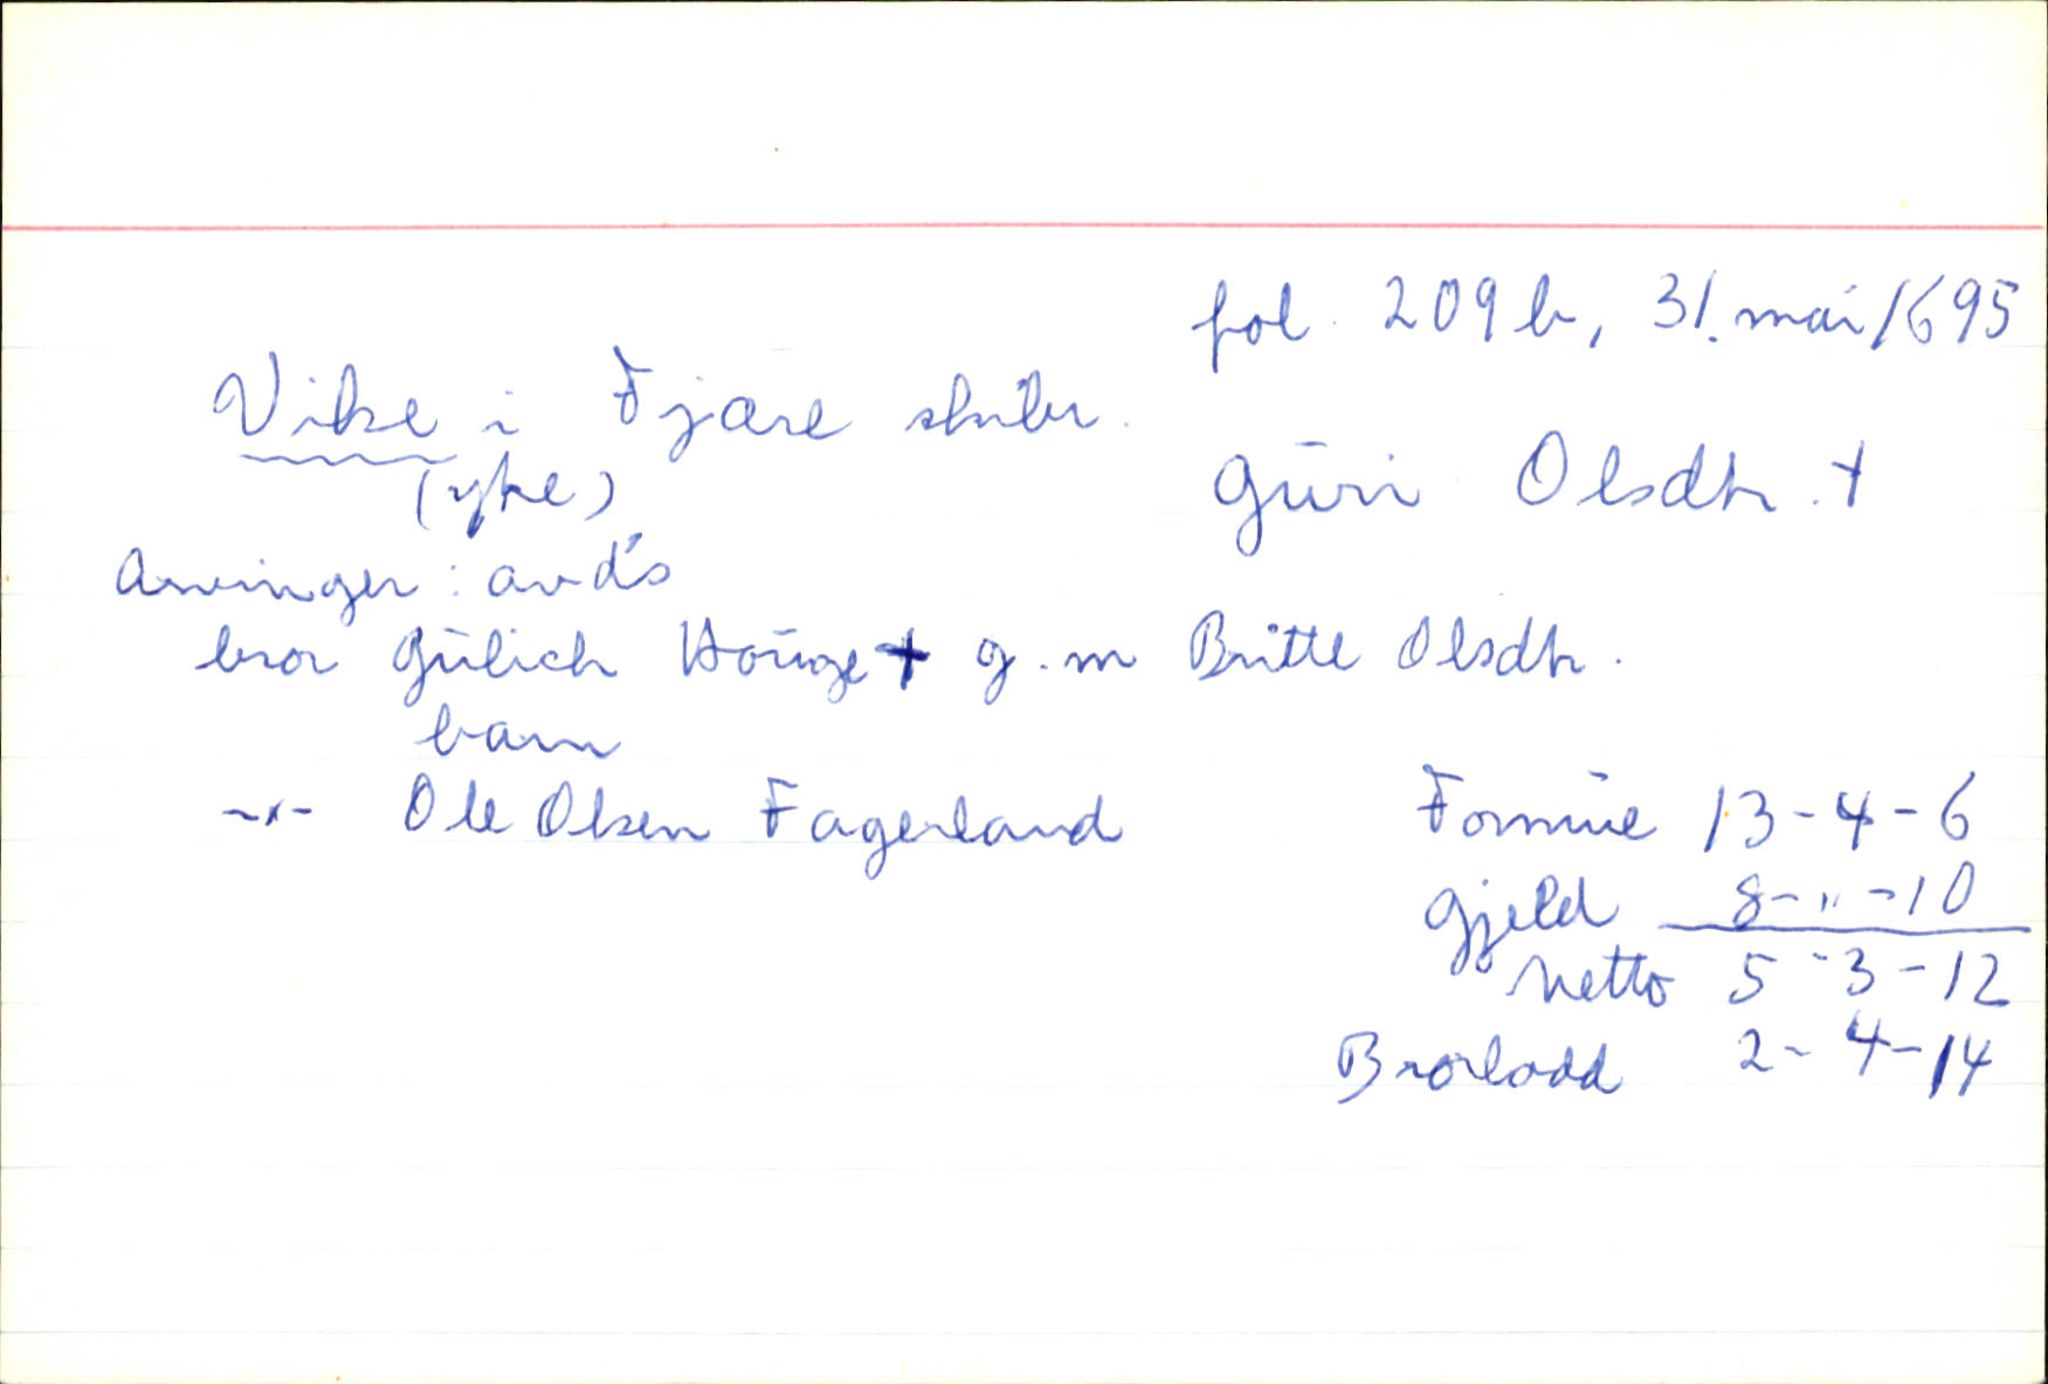 fol. 209 b, 31. mai 1695
Vike i Fjære skibr.
(yke)
Guri Olsdtr. +
Arvinger: avd's
bror Gulich Houge + g.m Britte Olsdtr.
barn
-"- Ole Olsen Fagerland
Formue 13-4-6
Gjeld 8-"-10
Netto 5-3-12
Brorlodd 2-4-14